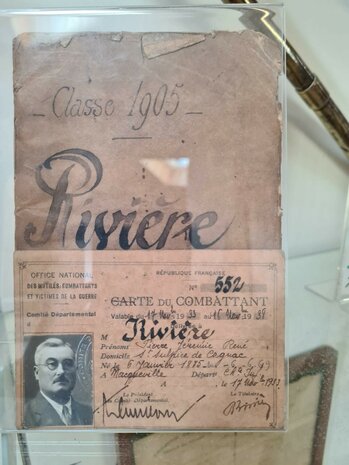 Classe 1905
Rivière
OFFICE NATIONAL
DES MUTILÉS, COMBATTANTS
ET VICTIMES DE LA GUERRE
Comité Départemental
RÉPUBLIQUE FRANÇAISE
N° 552
CARTE DU COMBATTANT
Valable du 17 Nov 33 au 16 Nov 38
M Rivière
Prénoms Pierre Jérémie René
Domicile St Sulpice de Cognac
Né le 6 Janvier 1885
à Macqueville Départ Che Infre
le 17 Nov 1933
Le Président
du Comité Départemental
Le Titulaire